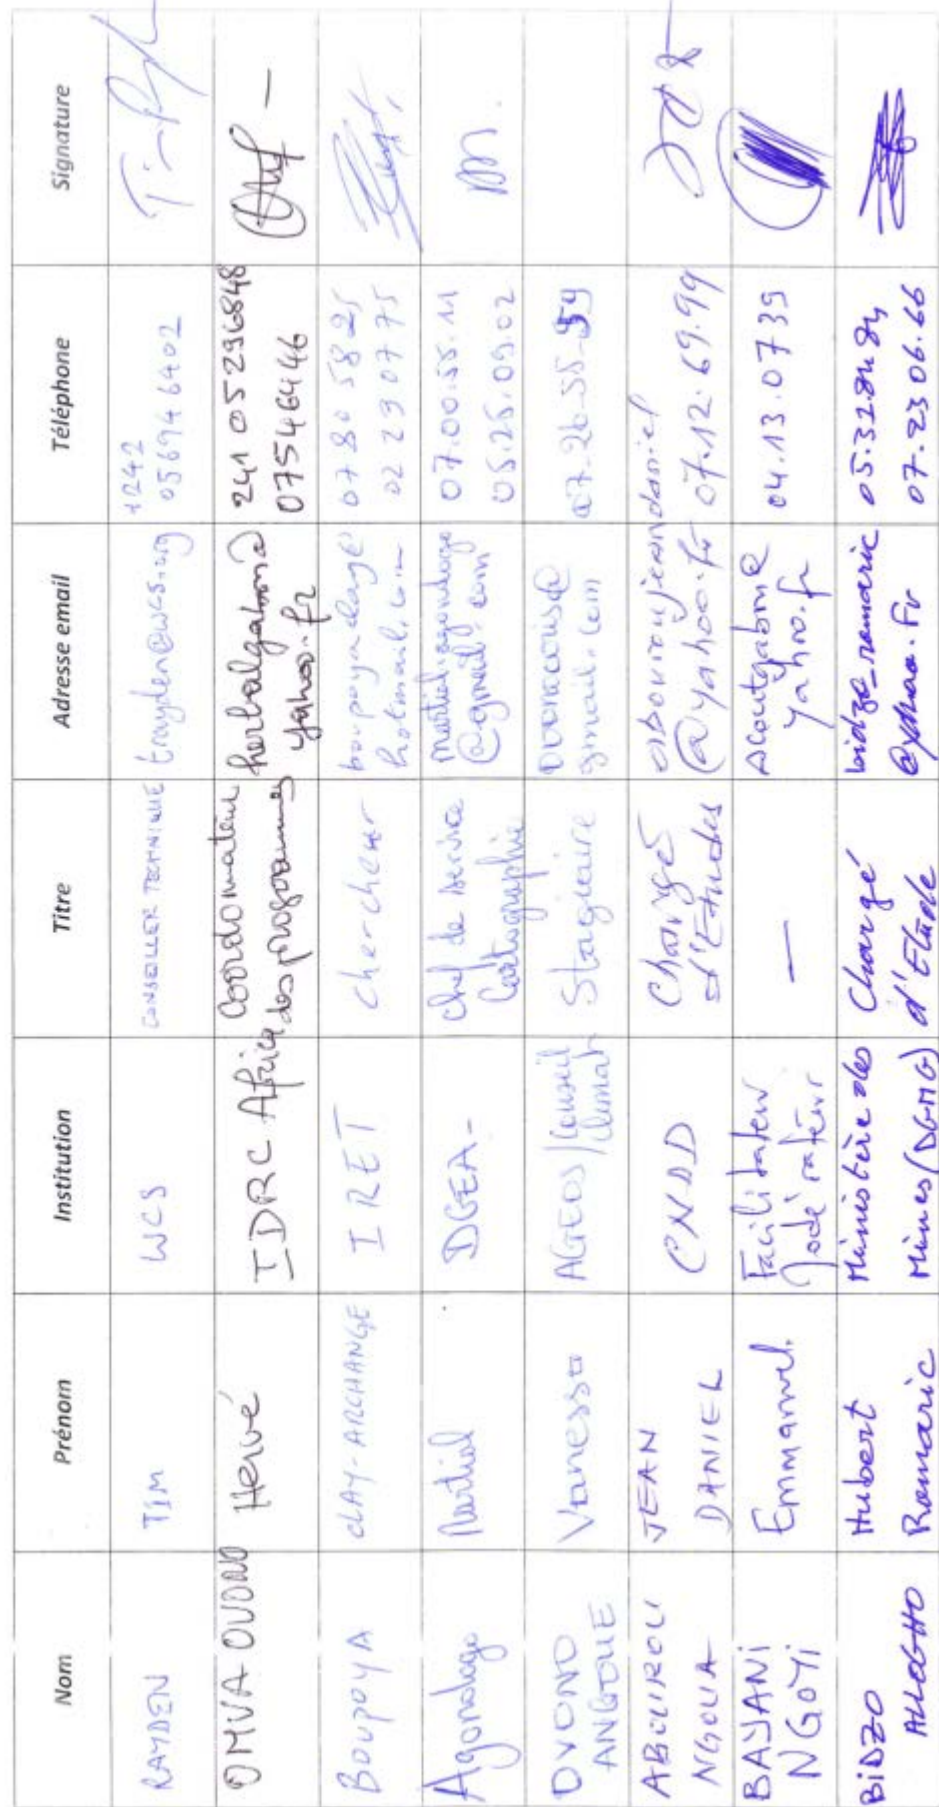 Nom Prénom Institution Titre Adresse email Téléphone Signature
RAYDEN TIM WCS CONSEILLER TECHNIQUE trayden@wcs.org +242
056946402
OMVA OVONO Hervé IDRC Africa Coordonnateur
des programmes herbalgabon@
yahoo.fr 241 05296848
07546446
BOUPOYA CLAY-ARCHANGE IRET Chercheur boupoyaclay@
hotmail.com 07805825
02290775
Agondogo Martial DGEA- Chef de service
Cartographie martialagondogo
@gmail.com 07.00.55.11
05.25.09.02
OVONO
ANGOUE Vanessa AGEOS/Conseil
Climat Stagiaire
gmail.com 07-26-55-59
ABOUROU
NGOUA JEAN
DANIEL CNDD Chargé
d'Etudes abouroujeandaniel
@yahoo.fr 07.12.69.99
BAJANI
NGOYI Emmanuel. Facilitateur — acoutgabon@
yahoo.fr 04.13.0739
BIDZO
ALLOGHO Hubert
Romaric Ministère des
Mines (DGMG) Chargé
d'Etude bidzo_romaric
@yahoo.fr 05.32.84.84
07.23 06.66